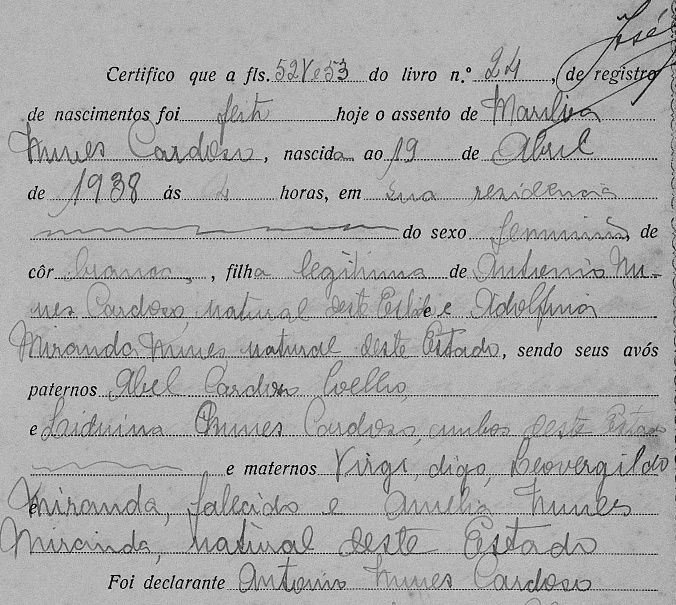 José
Certifico que a fls. 52V e 53 do livro n.º 24, de registro
de nascimentos foi feito hoje o assento de Marilia
Nunes Cardoso, nascida ao 19 de Abril
de 1938 ás horas, em sua residencia
do sexo feminino, de
côr branca, , filha legitima de Antonio Nu-
nes Cardoso, natural deste Estado e Adolfina
Miranda Nunes natural deste Estado, sendo seus avós
paternos Abel Cardoso Coelho,
e Liduina Nunes Cardoso, ambos deste Estado
e maternos Virgi, digo, Leovergildo
Miranda, fallecido e Amelia Nunes
Miranda, natural deste Estado
Foi declarante Antonio Nunes Cardoso